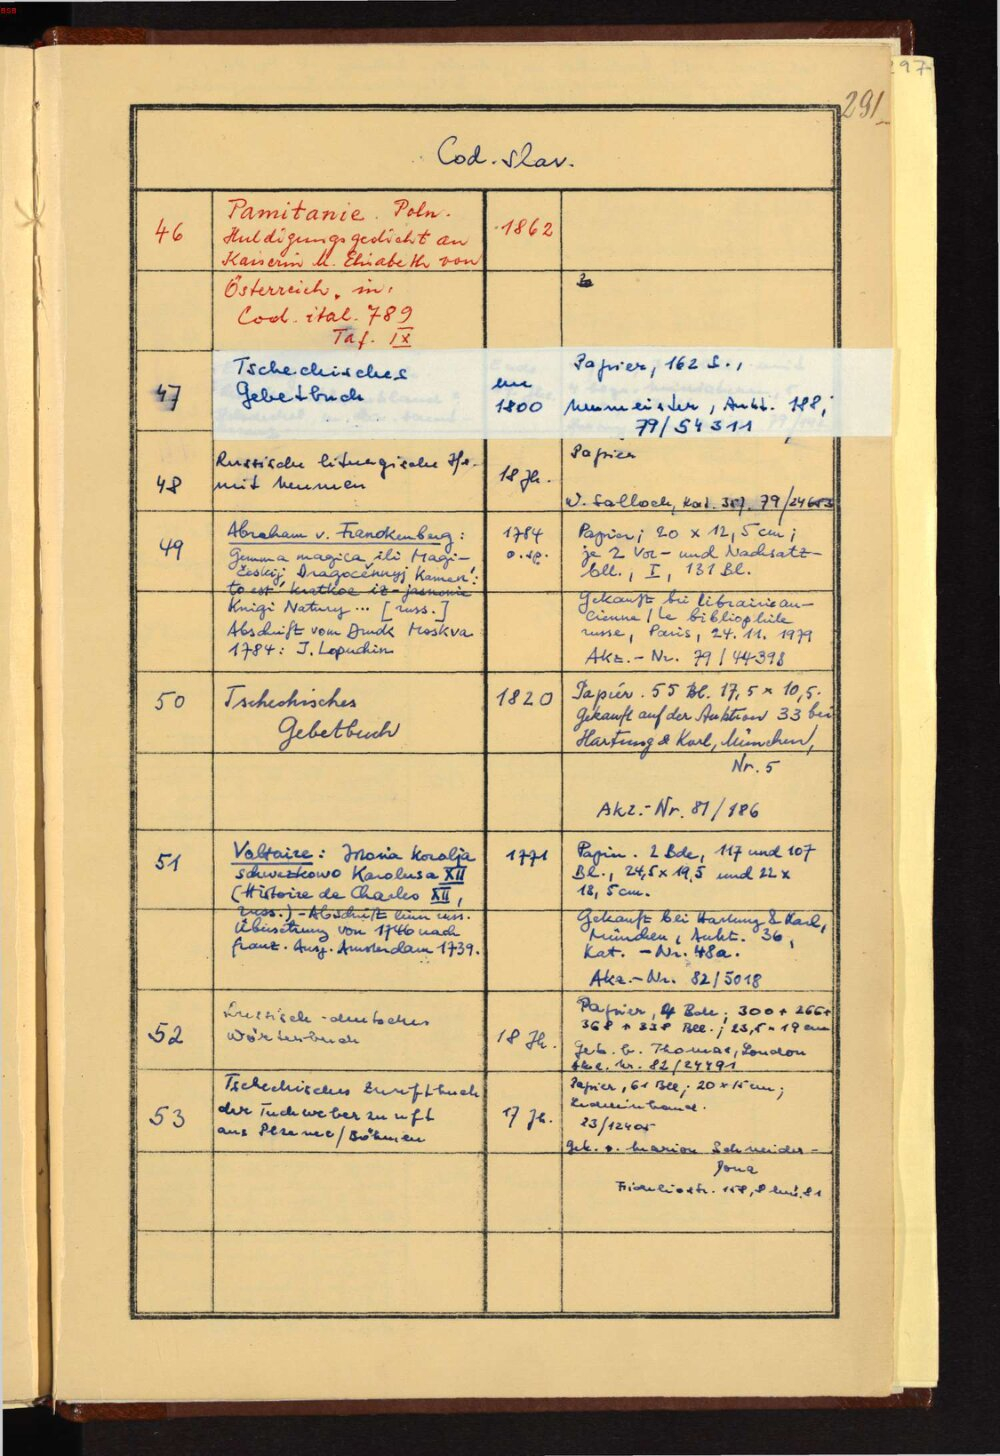 BSB
297
291
Cod. slav.
46
Pamitanie. Poln.
Huldigungsgedicht an
Kaiserin M. Elisabeth von
Österreich, in:
Cod. ital. 789
Taf. IX
1862
47
Tschechisches
Gebetbuch
um
1800
Papier, 162 S.,
Neumeister, Aukt. 188,
79/54311
48
Russische liturgische Hs.
mit Neumen
18 Jh.
Papier
W. Salloch, Kat. 79/24653
49
Abraham v. Franckenberg:
Gemma magica ili Magi-
českij Dragocěnnyj Kamen':
to est' kratkoe iz-jasnenie
Knigi Natury ... [russ.]
Abschrift vom Druck Moskva
1784: I. Lopuchin
1784
o. sp.
Papier; 20 x 12,5 cm;
je 2 Vor- und Nachsatz-
bll., I, 131 Bl.
Gekauft bei Librairie an-
cienne / Le bibliophile
russe, Paris, 24.11.1979
Akz.-Nr. 79/44398
50
Tschechisches
Gebetbuch
1820
Papier. 55 Bl. 17,5 x 10,5.
Gekauft auf der Auktion 33 bei
Hartung & Karl, München,
Nr. 5
Akz.-Nr. 81/186
51
Voltaire: Istoria Koralja
schwezkowo Karolusa XII
(Histoire de Charles XII,
russ.) - Abschrift einer russ.
Übersetzung von 1746 nach
franz. Ausg. Amsterdam 1739.
1771
Papier. 2 Bde, 117 und 107
Bl., 24,5 x 19,5 und 22 x
18,5 cm.
Gekauft bei Hartung & Karl,
München, Aukt. 36,
Kat.-Nr. 48a.
Akz.-Nr. 82/5018
52
Russisch-deutsches
Wörterbuch
18 Jh.
Papier, 4 Bde; 300 + 266 +
368 + 338 Bll.; 23,5 x 19 cm
Gek. b. Thomas, London
Akz. Nr. 82/24491
53
Tschechisches Zunftbuch
der Tuchweberzunft
aus /Böhmen
17 Jh.
Papier, 61 Bll; 20 x 15 cm;
Ledereinband.
23/12405
Gek. v. Marion Schneider-